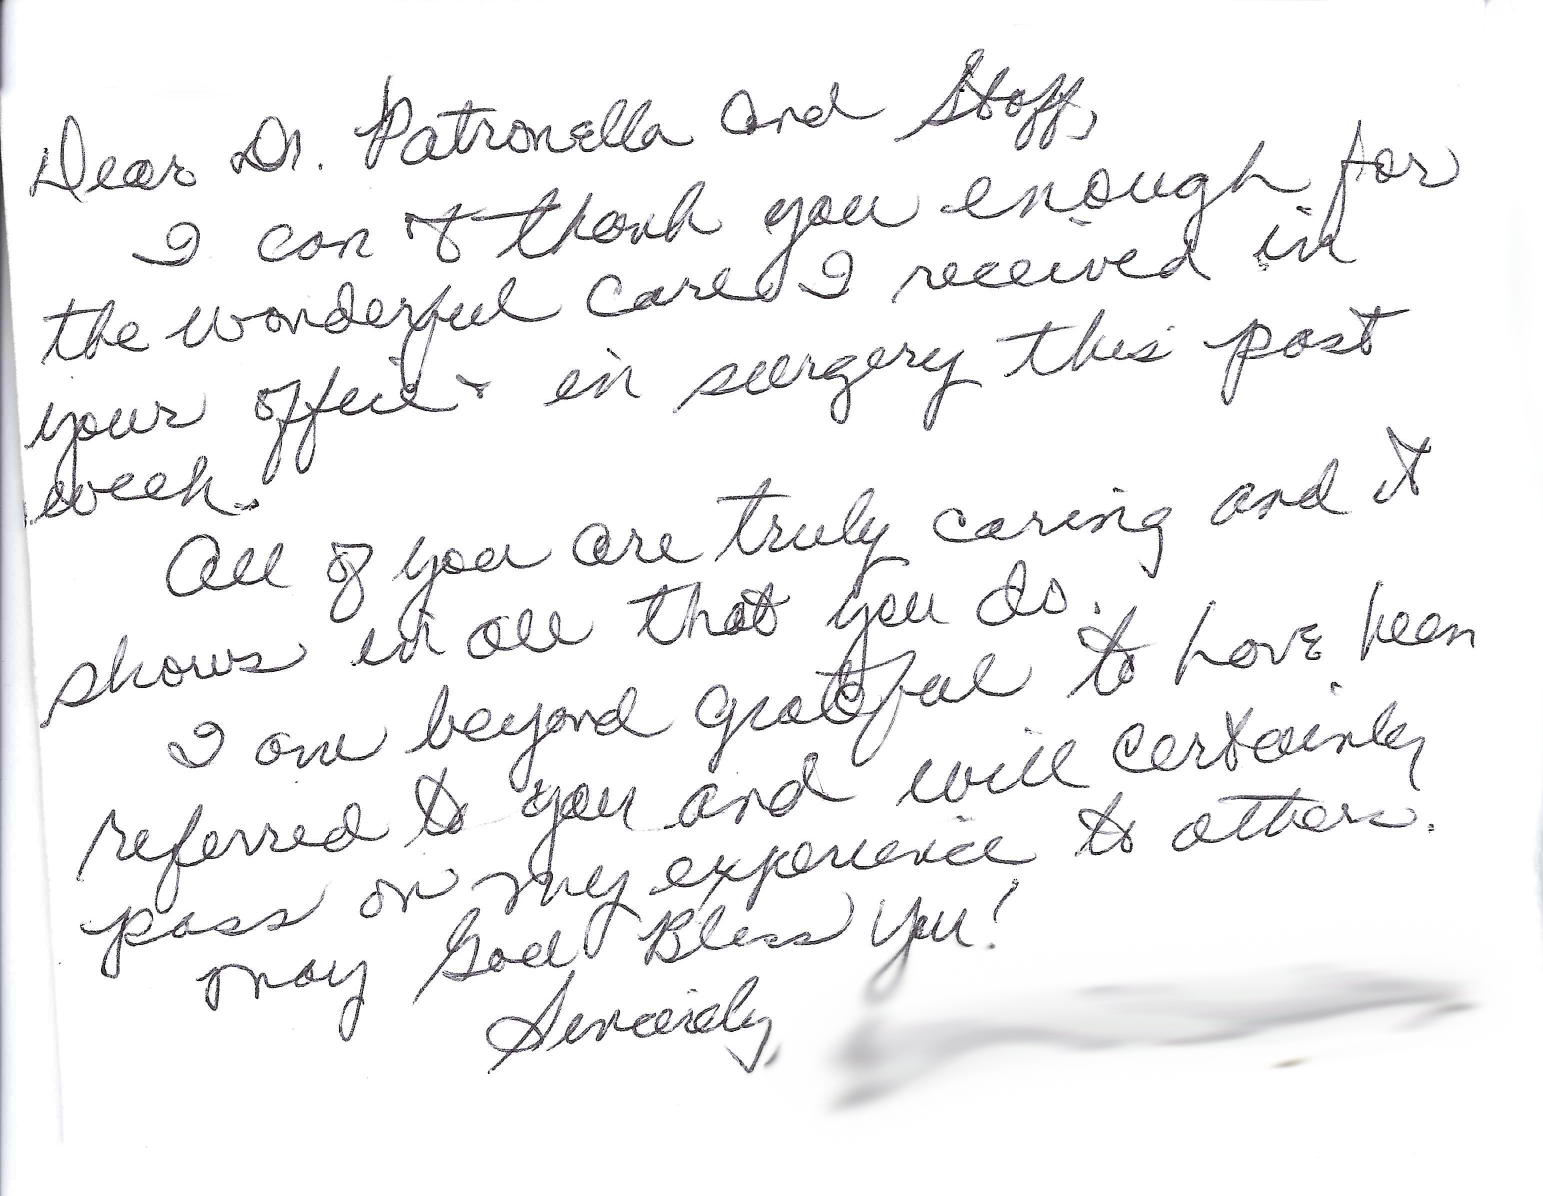 Dear Dr. Patronella and Staff,
I can't thank you enough for
the wonderful care I received in
your office & in surgery this past
week.
All of you are truly caring and it
shows in all that you do.
I am beyond grateful to have been
referred to you and will certainly
pass on my experience to others.
May God Bless You!
Sincerely,